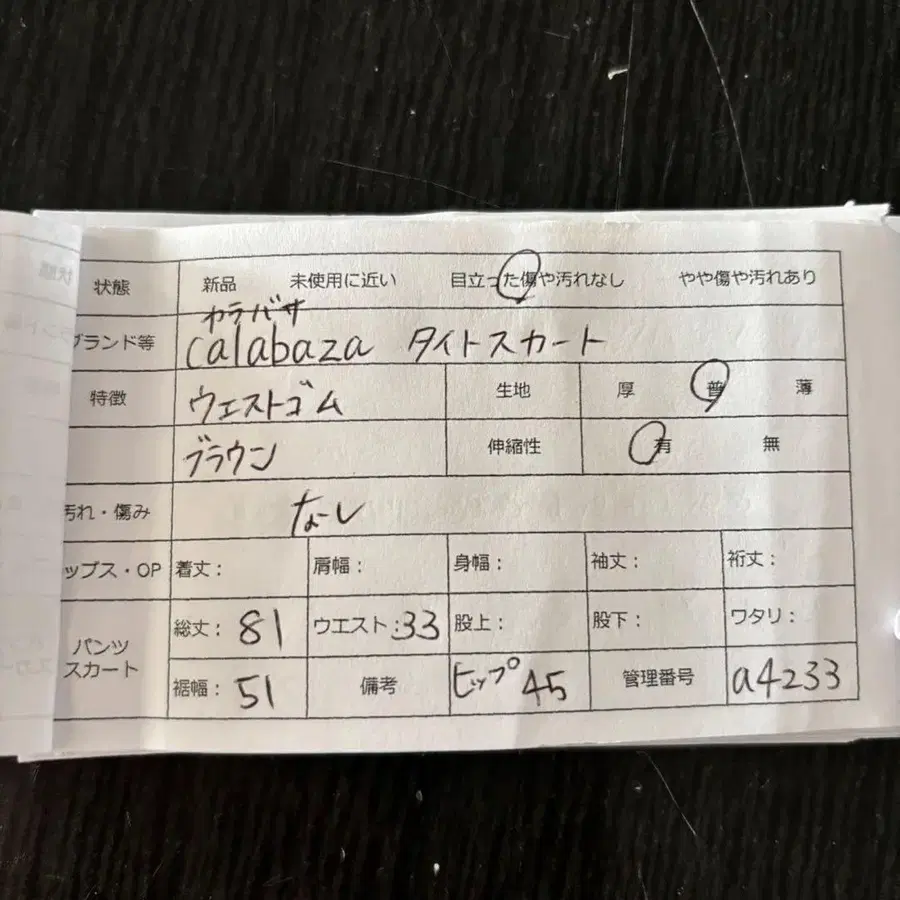 状態 新品 未使用に近い 目立った傷や汚れなし やや傷や汚れあり
カラバサ
ブランド等 calabaza タイトスカート
特徴 ウエストゴム 生地 厚 普 薄
ブラウン 伸縮性 有 無
汚れ・傷み なし
ップス・OP 着丈： 肩幅： 身幅： 袖丈： 裄丈：
パンツ スカート 総丈：81 ウエスト：33 股上： 股下： ワタリ：
裾幅：51 備考 ヒップ45 管理番号 a4233